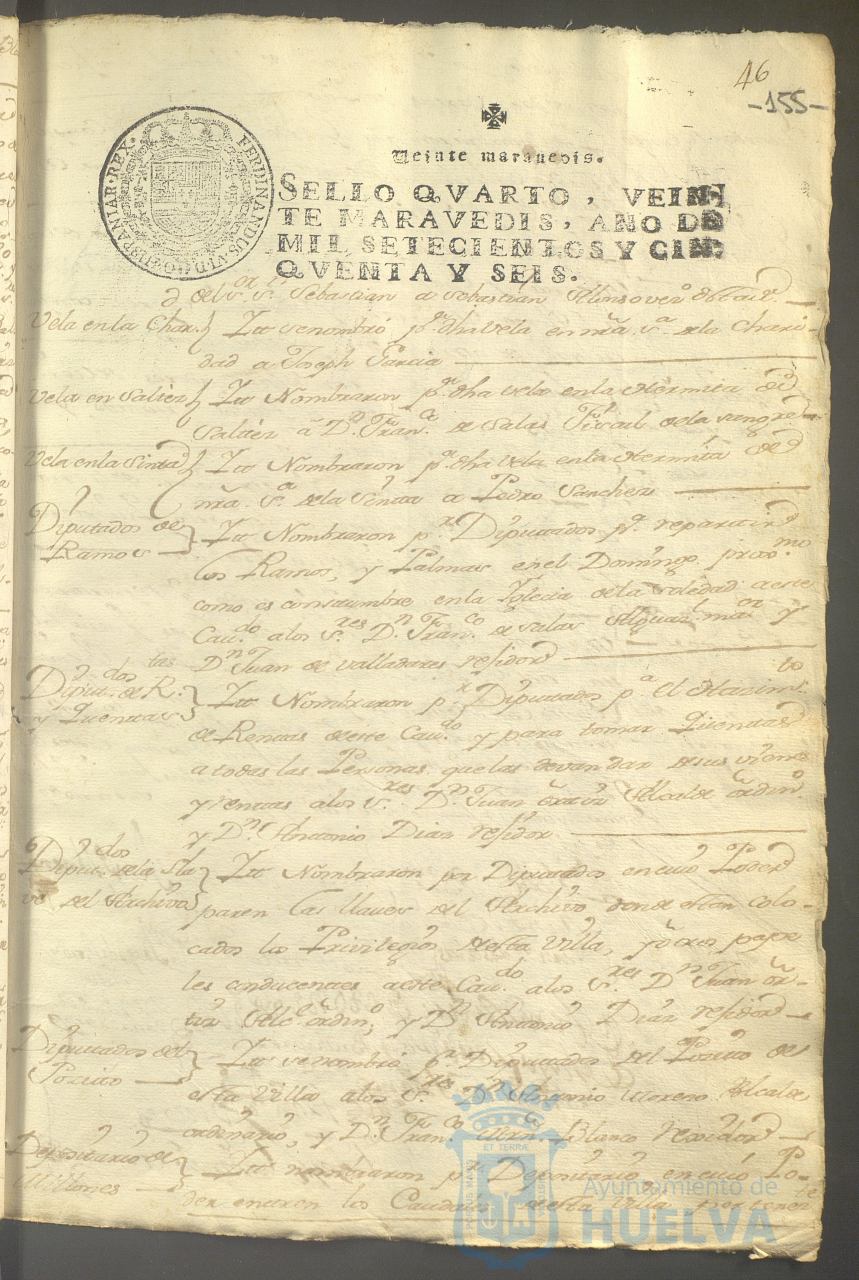 46
-155-
Veinte maravedis.
FERDINANDUS.VI.D.G.HISPANIAR.REX.
SELLO QVARTO, VEIN-
TE MARAVEDIS, AÑO DE
MIL SETECIENTOS Y CIN-
QVENTA Y SEIS.
del Sor Sn Sebastian a Sebastian Alonso
Vela en la Char.d Itt se nombró pa dha vela en nra Sa de la Chari-
dad a Joseph Garcia
Vela en Saltes Itt Nombraron pa dha vela en la Hermita de
Saltés á Dn Franco de Salas Fiscal de la sangre
Vela en la Sinta Itt Nombraron pa dha vela en la Hermita de
nra Sa de la Sinta a Pedro Sanches
Diputados de Itt Nombraron pr Diputados pa repartir
Ramos
los Ramos, y Palmas en el Domingo proxmo
como es constumbre en la Iglecia de la Soledad a este
Cavdo a los Sres Dn Franco de Salas Alguazl maor y
Dn Juan de Valladares residor
Diputdos de Rtas Itt Nombraron pr Diputados pa el Hacimto
y Quentas
de Rentas de este Cavdo y para tomar Quentas
a todas las Personas que las devan dar de sus vienes
y rentas a los Sres Dn Juan Alcalde ordino
y Dn Antonio Dias residor
Diputdos de la Lla Itt Nombraron por Diputados en cuio Poder
ve del Archivo
paren las llaves del Archivo donde estan colo-
cados los Privilegios de esta Villa, y otros pape
les conducentes a este Cavdo a los Sres Dn Juan
Alce ordino, y Dn Antonio Dias residor
Diputados del Itt se nombró pr Diputados del Posito de
Posito
esta Villa a los Sres Dn Antonio Moreno Alcalde
ordinario, y Dn Franco Blanco Residor
Depositario de Itt nombraron pr Depositario, en cuio Po-
Millones
der entren los Caudales de esta Villa
ET TERRÆ
Ayuntamiento de
HUELVA